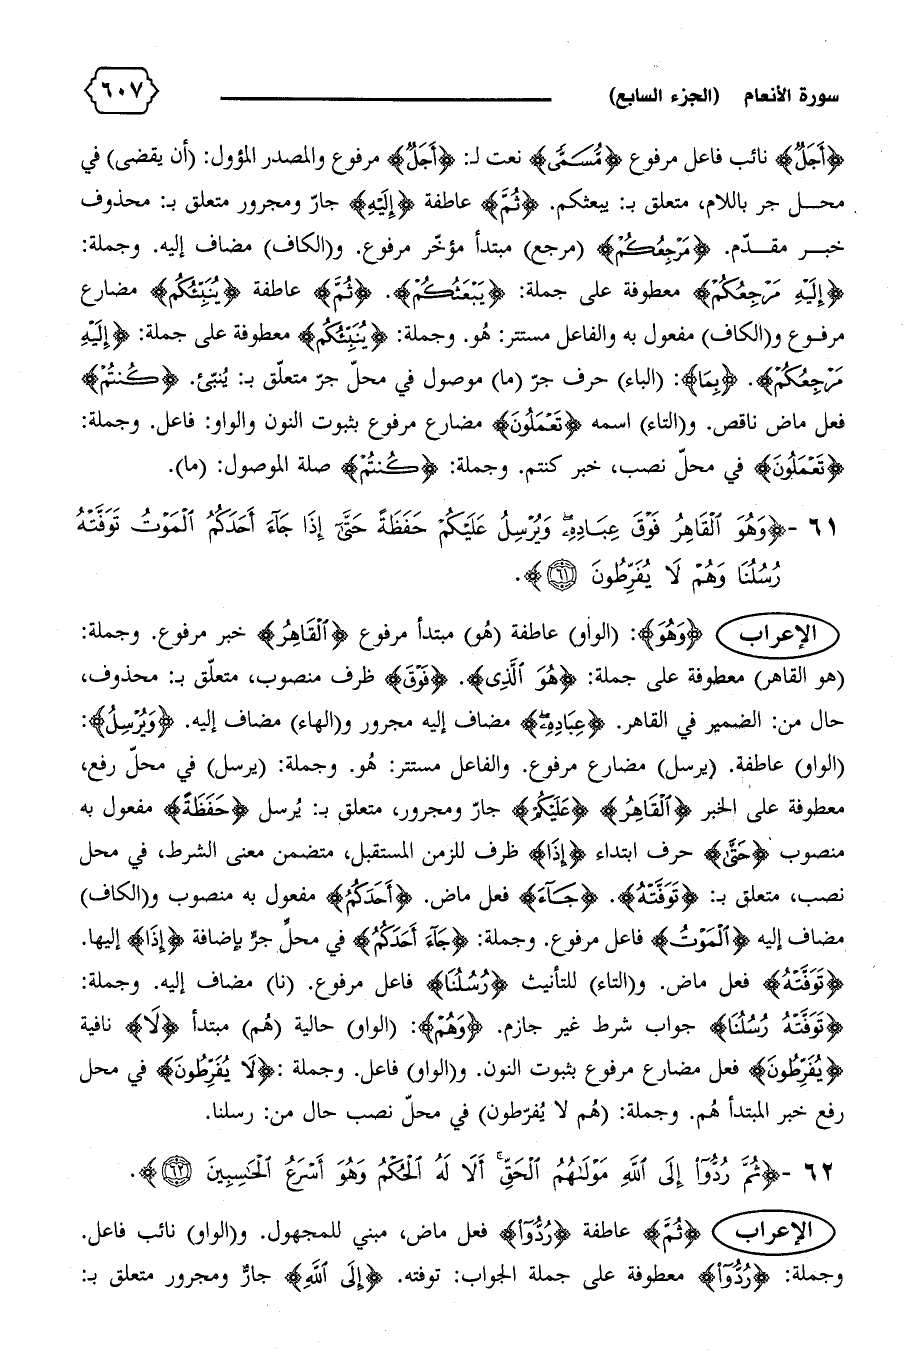 سورة الأنعام (الجزء السابع) ٦٠٧
﴿أَجَلٌ﴾ نائب فاعل مرفوع ﴿مُّسَمًّى﴾ نعت لـ: ﴿أَجَلٌ﴾ مرفوع والمصدر المؤول: (أن يقضى) في
محل جر باللام، متعلق بـ: يبعثكم. ﴿ثُمَّ﴾ عاطفة ﴿إِلَيْهِ﴾ جارّ ومجرور متعلق بـ: محذوف
خبر مقدّم. ﴿مَرْجِعُكُمْ﴾ (مرجع) مبتدأ مؤخّر مرفوع. و(الكاف) مضاف إليه. وجملة:
﴿إِلَيْهِ مَرْجِعُكُمْ﴾ معطوفة على جملة: ﴿يَبْعَثُكُمْ﴾. ﴿ثُمَّ﴾ عاطفة ﴿يُنَبِّئُكُم﴾ مضارع
مرفوع و(الكاف) مفعول به والفاعل مستتر: هُو. وجملة: ﴿يُنَبِّئُكُم﴾ معطوفة على جملة: ﴿إِلَيْهِ
مَرْجِعُكُمْ﴾. ﴿بِمَا﴾: (الباء) حرف جرّ (ما) موصول في محلّ جرّ متعلّق بـ: يُنبّئ. ﴿كُنتُمْ﴾
فعل ماض ناقص. و(التاء) اسمه ﴿تَعْمَلُونَ﴾ مضارع مرفوع بثبوت النون والواو: فاعل. وجملة:
﴿تَعْمَلُونَ﴾ في محلّ نصب، خبر كنتم. وجملة: ﴿كُنتُمْ﴾ صلة الموصول: (ما).
٦١ -﴿وَهُوَ ٱلْقَاهِرُ فَوْقَ عِبَادِهِۦۖ وَيُرْسِلُ عَلَيْكُمْ حَفَظَةً حَتَّىٰٓ إِذَا جَآءَ أَحَدَكُمُ ٱلْمَوْتُ تَوَفَّتْهُ
رُسُلُنَا وَهُمْ لَا يُفَرِّطُونَ ٦١﴾.
الإعراب ﴿وَهُوَ﴾: (الواو) عاطفة (هُو) مبتدأ مرفوع ﴿ٱلْقَاهِرُ﴾ خبر مرفوع. وجملة:
(هو القاهر) معطوفة على جملة: ﴿هُوَ ٱلَّذِى﴾. ﴿فَوْقَ﴾ ظرف منصوب، متعلّق بـ: محذوف،
حال من: الضمير في القاهر. ﴿عِبَادِهِۦۖ﴾ مضاف إليه مجرور و(الهاء) مضاف إليه. ﴿وَيُرْسِلُ﴾:
(الواو) عاطفة. (يرسل) مضارع مرفوع. والفاعل مستتر: هُو. وجملة: (يرسل) في محلّ رفع،
معطوفة على الخبر ﴿ٱلْقَاهِرُ﴾ ﴿عَلَيْكُمْ﴾ جارّ ومجرور، متعلق بـ: يُرسل ﴿حَفَظَةً﴾ مفعول به
منصوب ﴿حَتَّىٰ﴾ حرف ابتداء ﴿إِذَا﴾ ظرف للزمن المستقبل، متضمن معنى الشرط، في محل
نصب، متعلق بـ: ﴿تَوَفَّتْهُ﴾. ﴿جَآءَ﴾ فعل ماض. ﴿أَحَدَكُمُ﴾ مفعول به منصوب و(الكاف)
مضاف إليه ﴿ٱلْمَوْتُ﴾ فاعل مرفوع. وجملة: ﴿جَآءَ أَحَدَكُمُ﴾ في محلّ جرٍّ بإضافة ﴿إِذَا﴾ إليها.
﴿تَوَفَّتْهُ﴾ فعل ماض. و(التاء) للتأنيث ﴿رُسُلُنَا﴾ فاعل مرفوع. (نا) مضاف إليه. وجملة:
﴿تَوَفَّتْهُ رُسُلُنَا﴾ جواب شرط غير جازم. ﴿وَهُمْ﴾: (الواو) حالية (هُم) مبتدأ ﴿لَا﴾ نافية
﴿يُفَرِّطُونَ﴾ فعل مضارع مرفوع بثبوت النون. و(الواو) فاعل. وجملة :﴿لَا يُفَرِّطُونَ﴾ في محل
رفع خبر المبتدأ هُم. وجملة: (هُم لا يُفرّطون) في محلّ نصب حال من: رسلنا.
٦٢ -﴿ثُمَّ رُدُّوٓا۟ إِلَى ٱللَّهِ مَوْلَىٰهُمُ ٱلْحَقِّ ۚ أَلَا لَهُ ٱلْحُكْمُ وَهُوَ أَسْرَعُ ٱلْحَٰسِبِينَ ٦٢﴾.
الإعراب ﴿ثُمَّ﴾ عاطفة ﴿رُدُّوٓا۟﴾ فعل ماض، مبني للمجهول. و(الواو) نائب فاعل.
وجملة: ﴿رُدُّوٓا۟﴾ معطوفة على جملة الجواب: توفته. ﴿إِلَى ٱللَّهِ﴾ جارٌّ ومجرور متعلق بـ: